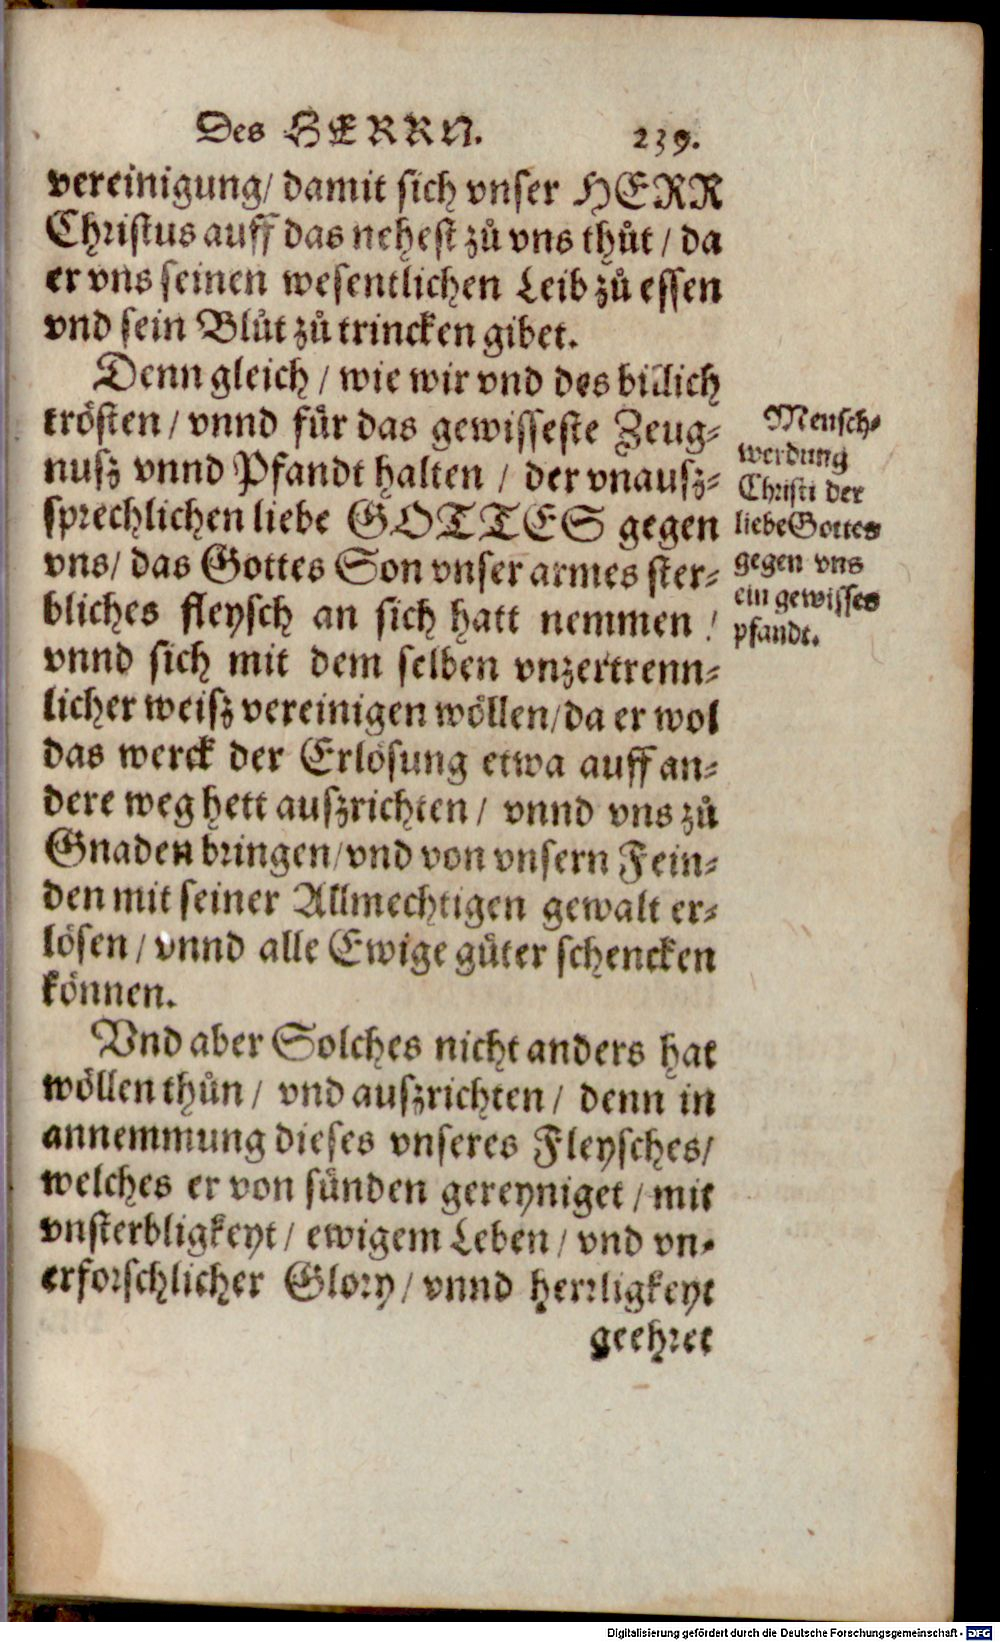 Des HERRN. 239.
vereinigung/ damit sich vnser HERR
Christus auff das nehest zů vns thůt / da
er vns seinen wesentlichen Leib zů essen
vnd sein Blůt zů trincken gibet.
Denn gleich / wie wir vnd des billich
trösten / vnnd für das gewisseste Zeug⸗
nusz vnnd Pfandt halten / der vnausz⸗
sprechlichen liebe GOTTES gegen
vns/ das Gottes Son vnser armes ster⸗
bliches fleysch an sich hatt nemmen /
vnnd sich mit dem selben vnzertrenn⸗
licher weisz vereinigen wöllen/da er wol
das werck der Erlösung etwa auff an⸗
dere weg hett auszrichten / vnnd vns zů
Gnaden bringen/vnd von vnsern Fein⸗
den mit seiner Allmechtigen gewalt er⸗
lösen / vnnd alle Ewige güter schencken
können.
Vnd aber Solches nicht anders hat
wöllen thůn / vnd auszrichten / denn in
annemmung dieses vnseres Fleysches/
welches er von sünden gereyniget / mit
vnsterbligkeyt / ewigem Leben / vnd vn⸗
erforschlicher Glory / vnnd herrligkeyt
geehret
Mensch⸗
werdung
Christi der
liebe Gottes
gegen vns
ein gewisses
pfandt.
Digitalisierung gefördert durch die Deutsche Forschungsgemeinschaft - DFG